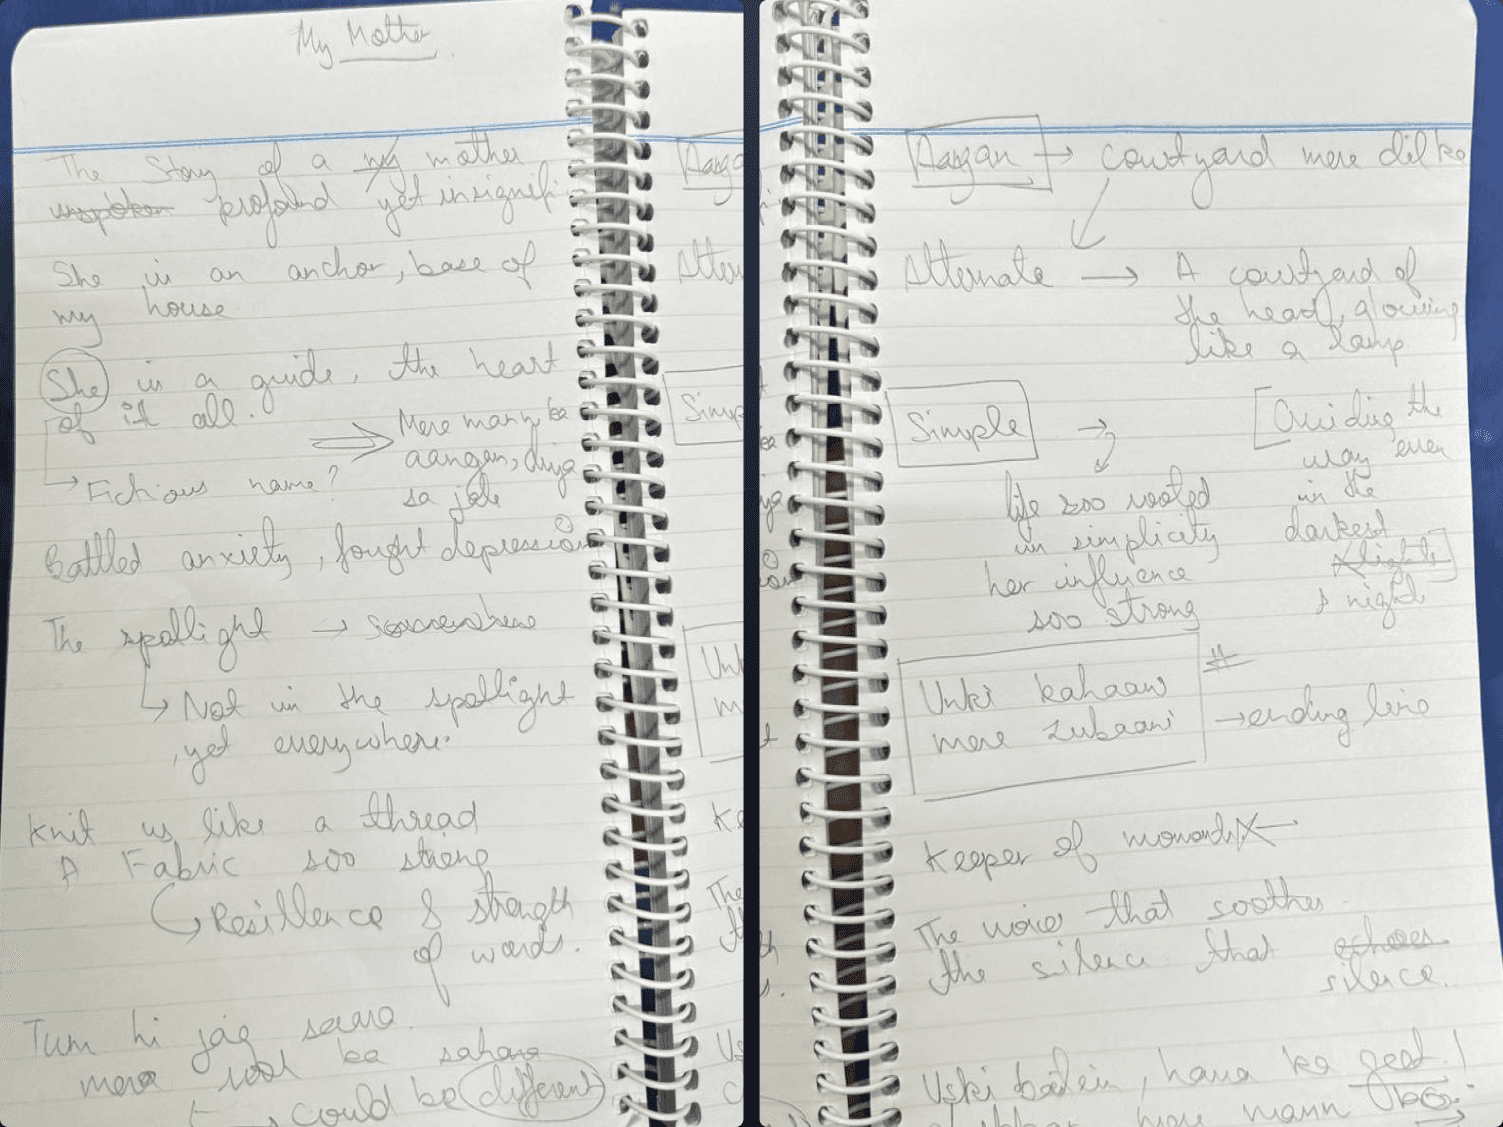 My Mother
The Story of a my mother
unspoken profound yet insignifi
She is an anchor, base of
my house
She is a guide, the heart
of it all.
Mere mann ka
aangan, diya
sa jale
Fictious name?
Battled anxiety, fought depression
The spotlight → somewhere
Not in the spotlight
, yet everywhere.
Knit us like a thread
A Fabric soo strong
Resillence & strength
of words.
Tum hi jag saara.
mera rooh ka sahara
could be different
Aangan → courtyard mere dil ka
Alternate → A courtyard of
the heart, glowing
like a lamp
Simple →
life soo rooted
in simplicity
her influence
soo strong
[Guiding the
way even
in the
darkest
lights]
& night
Unki kahaani
mere zubaani
# → ending line
Keeper of
The voice that soothes
the silence that echoes
silence.
Uski baatein, hawa ka geet!
mere mann